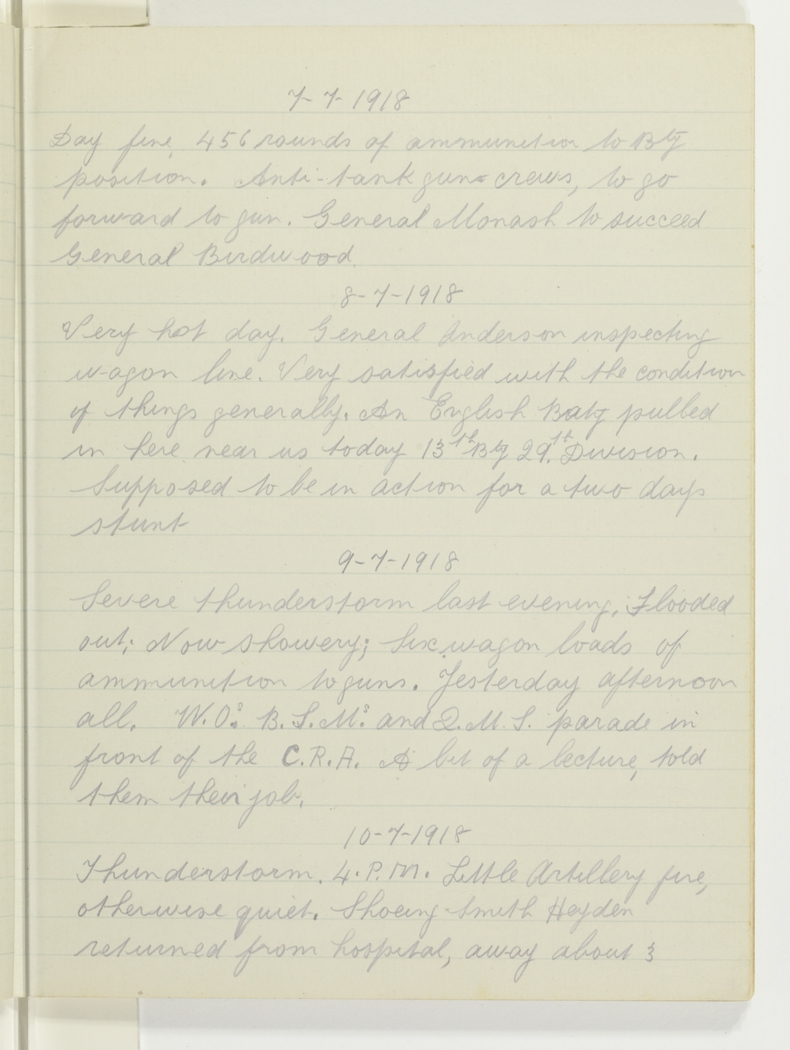 7-7-1918
Day fine, 456 rounds of ammunition to Bty
position. Anti-tank guns crews, to go
forward to gun. General Monash to succeed
General Birdwood.
8-7-1918
Very hot day. General Anderson inspecting
wagon line. Very satisfied with the condition
of things generally. An English Baty pulled
in here near us today 13th Bty 29th Division.
Supposed to be in action for a two days
stunt
9-7-1918
Severe thunderstorm last evening. Flooded
out; Now showery; Six wagon loads of
ammunition to guns. Yesterday afternoon
all. W.O.s B.S.M.s and Q.M.S. parade in
front of the C.R.A. A bit of a lecture, told
them their job.
10-7-1918
Thunderstorm. 4.P.M. Little Artillery fire,
otherwise quiet. Shoeing-Smith Heyden
returned from hospital, away about 3